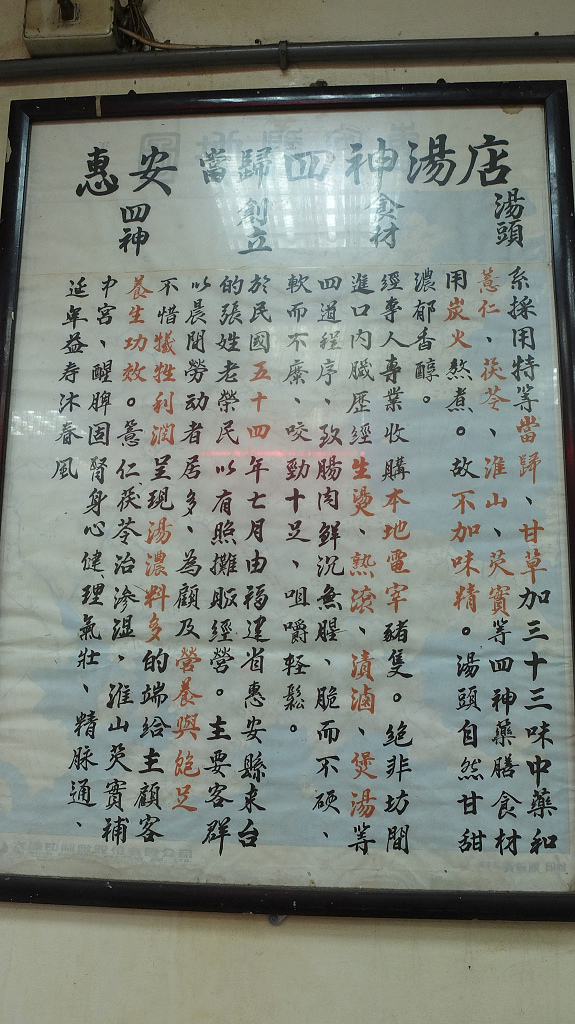 惠安當歸四神湯店
湯頭
系採用特等當歸、甘草加三十三味中藥和
薏仁、茯苓、淮山、芡實等四神藥膳食材
用炭火熬煮。故不加味精。湯頭自然甘甜
濃郁香醇。
食材
經專人專業收購本地電宰豬隻。絕非坊間
進口内臟歷經生燙、熱滾、漬滷、煲湯等
四道程序、致腸肉鮮沉無腥、脆而不硬、
軟而不糜、咬勁十足、咀嚼輕鬆。
創立
於民國五十四年七月由福建省惠安縣來台
的張姓老榮民以有照攤販經營。主要客群
以晨間勞动者居多、為顧及營養與飽足
不惜犧牲利潤呈現湯濃料多的端給主顧客
四神
養生功效。薏仁茯苓治滲溼、淮山芡實補
中宮、醒脾固腎身心健、理氣壯、精脉通、
延年益寿沐春風